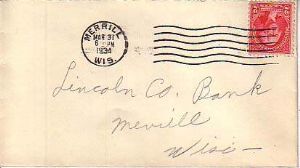 MERRILL
MAR 31
6 PM
1934
WIS.
Lincoln Co. Bank
Merrill
Wisc-